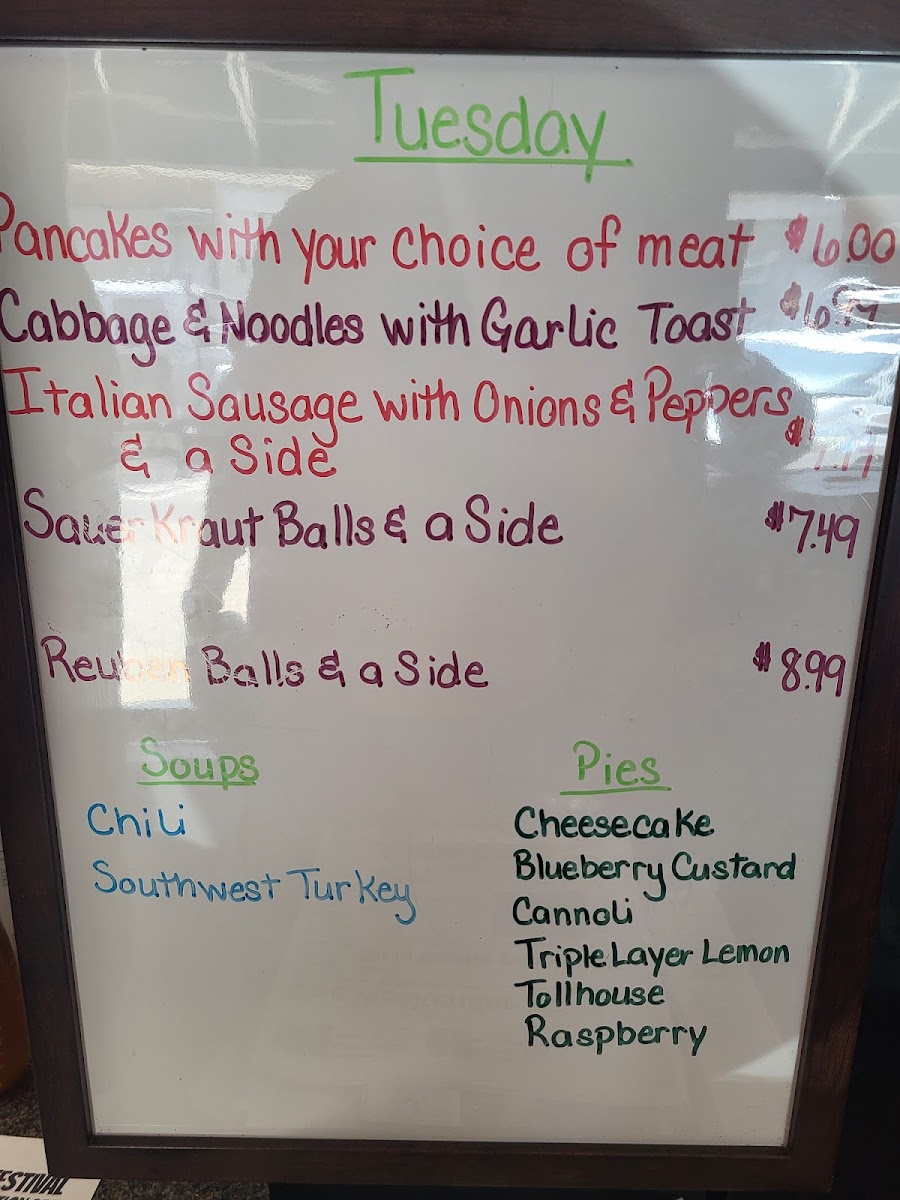 Tuesday
Pancakes with your choice of meat $6.00
Cabbage & Noodles with Garlic Toast
Italian Sausage with Onions & Peppers
& a Side
Sauer Kraut Balls & a Side $7.49
Reuben Balls & a Side $8.99
Soups
Chili
Southwest Turkey
Pies
Cheesecake
Blueberry Custard
Cannoli
Triple Layer Lemon
Tollhouse
Raspberry
FESTIVAL